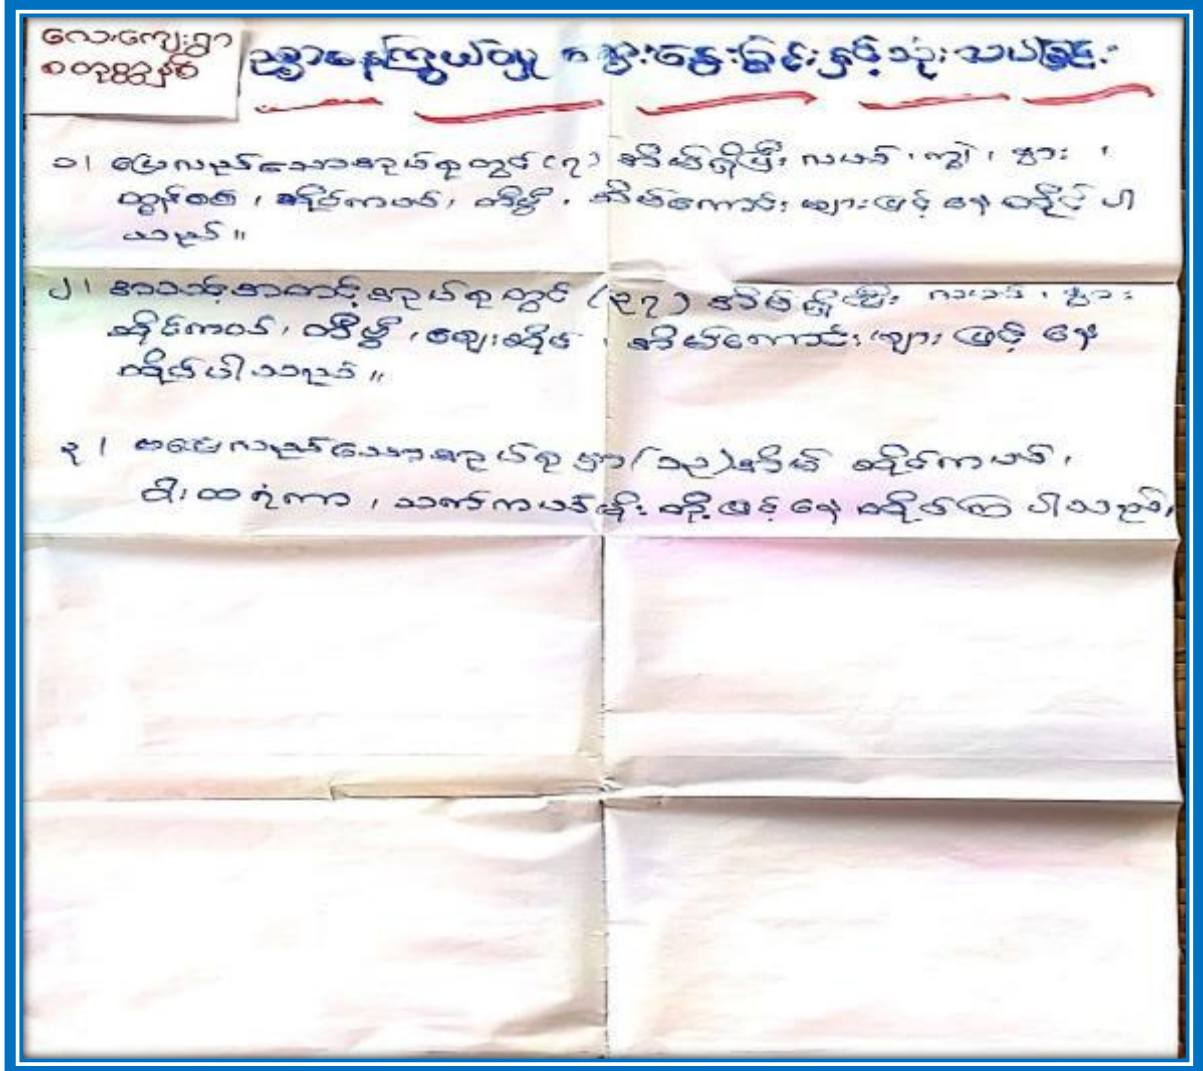 လေးကျေးရွာ
စတုဒ္ဒိနစ်
ဥစ္စာဓနကြွယ်ဝမှု ဆွေးနွေးခြင်းနှင့်သုံးသပ်ခြင်း
၁။ ပြေလည်သောစဉယ်စုတွင် (၇) အိမ်ရှိပြီး လယ်၊ ကျွဲ၊ နွား၊
ထွန်စက်၊ ဆိုင်ကယ်၊ တီဗွီ၊ အိမ်ကောင်းများဖြင့် နေထိုင်ပါ
သည်။
၂။ အသင့်အတင့်စဉယ်စုတွင် (၃၇) အိမ်ရှိပြီး လယ်၊ နွား
ဆိုင်ကယ်၊ တီဗွီ၊ ဈေးဆိုင်၊ အိမ်ကောင်းများဖြင့် နေ
ထိုင်ပါသည်။
၃။ မပြေလည်သောစဉယ်စုမှာ (၁၃) အိမ် ဆိုင်ကယ်၊
ဝါးထရံကာ၊ သက်ကယ်မိုးတို့ဖြင့် နေထိုင်ကြပါသည်။